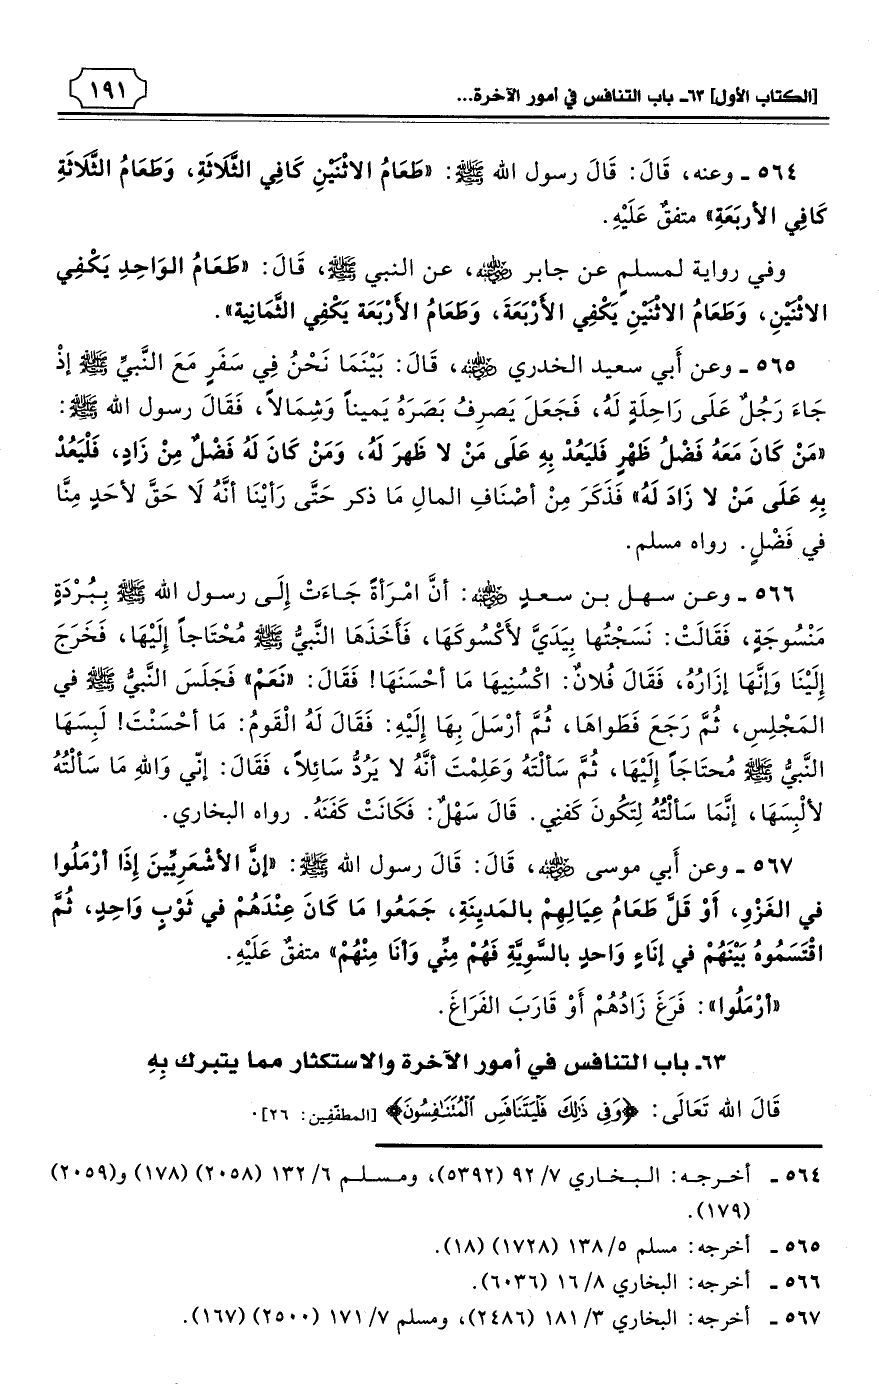 [الكتاب الأول] ٦٣ـ باب التنافس في أمور الآخرة... ١٩١
٥٦٤ ـ وعنه، قَالَ: قَالَ رسول الله ﷺ: «طَعَامُ الاثْنَيْنِ كَافِي الثَّلَاثَةِ، وَطَعَامُ الثَّلَاثَةِ
كَافِي الأربَعَةِ» متفقٌ عَلَيْهِ.
وفي رواية لمسلمٍ عن جابر ﵁، عن النبي ﷺ، قَالَ: «طَعَامُ الوَاحِدِ يَكْفِي
الاثْنَيْنِ، وَطَعَامُ الاثْنَيْنِ يَكْفِي الأَرْبَعَةَ، وَطَعَامُ الأَرْبَعَة يَكْفِي الثَّمَانِية».
٥٦٥ ـ وعن أَبي سعيد الخدري ﵁، قَالَ: بَيْنَمَا نَحْنُ فِي سَفَرٍ مَعَ النَّبيِّ ﷺ إذْ
جَاءَ رَجُلٌ عَلَى رَاحِلَةٍ لَهُ، فَجَعَلَ يَصرِفُ بَصَرَهُ يَميناً وَشِمَالاً، فَقَالَ رسول الله ﷺ:
«مَنْ كَانَ مَعَهُ فَضْلُ ظَهْرٍ فَليَعُدْ بِهِ عَلَى مَنْ لا ظَهرَ لَهُ، وَمَنْ كَانَ لَهُ فَضْلٌ مِنْ زَادٍ، فَلْيَعُدْ
بِهِ عَلَى مَنْ لا زَادَ لَهُ» فَذَكَرَ مِنْ أصْنَافِ المالِ مَا ذكر حَتَّى رَأيْنَا أنَّهُ لَا حَقَّ لأحَدٍ مِنَّا
في فَضْلٍ. رواه مسلم.
٥٦٦ ـ وعن سهل بن سعدٍ ﵁: أنَّ امْرَأةً جَاءَتْ إِلَى رسول الله ﷺ بِبُرْدَةٍ
مَنْسُوجَةٍ، فَقَالَتْ: نَسَجْتُها بِيَدَيَّ لأَكْسُوكَهَا، فَأَخَذَهَا النَّبيُّ ﷺ مُحْتَاجاً إِلَيْهَا، فَخَرَجَ
إِلَيْنَا وَإنَّهَا إزَارُهُ، فَقَالَ فُلانٌ: اكْسُنِيهَا مَا أحْسَنَهَا! فَقَالَ: «نَعَمْ» فَجَلَسَ النَّبيُّ ﷺ في
المَجْلِسِ، ثُمَّ رَجَعَ فَطَواهَا، ثُمَّ أرْسَلَ بِهَا إِلَيْهِ: فَقَالَ لَهُ الْقَومُ: مَا أحْسَنْتَ! لَبِسَهَا
النَّبيُّ ﷺ مُحتَاجَاً إِلَيْهَا، ثُمَّ سَألْتَهُ وَعَلِمْتَ أنَّهُ لا يَرُدُّ سَائِلاً، فَقَالَ: إنّي وَاللهِ مَا سَألْتُهُ
لألْبِسَهَا، إنَّمَا سَألْتُهُ لِتَكُونَ كَفنِي. قَالَ سَهْلٌ: فَكَانَتْ كَفَنَهُ. رواه البخاري.
٥٦٧ ـ وعن أَبي موسى ﵁، قَالَ: قَالَ رسول الله ﷺ: «إنَّ الأشْعَرِيِّينَ إِذَا أرْمَلُوا
في الغَزْوِ، أَوْ قَلَّ طَعَامُ عِيَالِهِمْ بالمَدِينَةِ، جَمَعُوا مَا كَانَ عِنْدَهُمْ في ثَوْبٍ وَاحِدٍ، ثُمَّ
اقْتَسَمُوهُ بَيْنَهُمْ في إنَاءٍ وَاحدٍ بالسَّوِيَّةِ فَهُمْ مِنِّي وَأنَا مِنْهُمْ» متفقٌ عَلَيْهِ.
«أرْمَلُوا»: فَرَغَ زَادُهُمْ أَوْ قَارَبَ الفَرَاغَ.
٦٣ـ باب التنافس في أمور الآخرة والاستكثار مما يتبرك بِهِ
قَالَ الله تَعَالَى: ﴿وَفِي ذَٰلِكَ فَلْيَتَنَافَسِ ٱلْمُتَنَٰفِسُونَ﴾ [المطفّفِين: ٢٦].
٥٦٤ ـ أخرجه: البخاري ٧/ ٩٢ (٥٣٩٢)، ومسلم ٦/ ١٣٢ (٢٠٥٨) (١٧٨) و(٢٠٥٩)
(١٧٩).
٥٦٥ ـ أخرجه: مسلم ٥/ ١٣٨ (١٧٢٨) (١٨).
٥٦٦ ـ أخرجه: البخاري ٨/ ١٦ (٦٠٣٦).
٥٦٧ ـ أخرجه: البخاري ٣/ ١٨١ (٢٤٨٦)، ومسلم ٧/ ١٧١ (٢٥٠٠) (١٦٧).